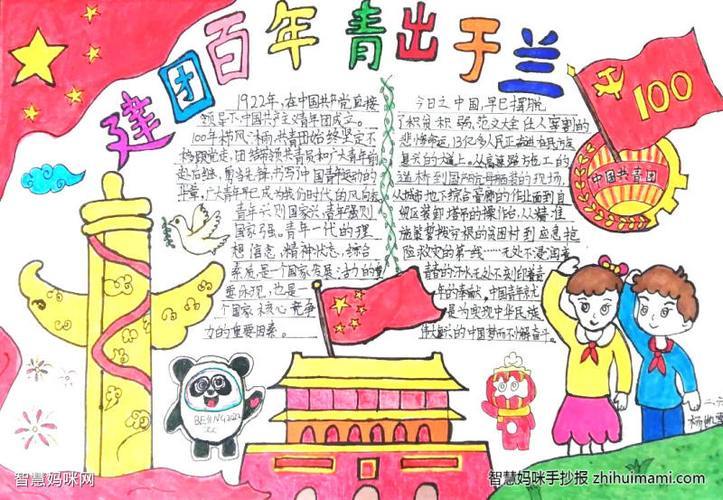 建团百年 青出于兰
1922年,在中国共产党直接
领导下,中国共产主义青年团成立。
100年栉风沐雨,共青团始终坚定不
移跟党走,团结带领共青团和广大青年前
赴后继,勇当先锋,书写了中国青年运动的
华章,广大青年早已成为我们时代的风向标
青年兴则国家兴,青年强则
国家强。青年一代的理
想信念,精神状态,综合
素质,是一个国家发展活力的重
要体现,也是一
个国家核心竞争
力的重要因素。
今日之中国,早已摆脱
了积贫积弱,任人宰割的
悲惨命运,13亿多人民正奋进在民族
复兴的大道上。从高速路施工的
道桥到国际元母舰的现场,
从城市地下综合管廊的作业面到自
贸区装卸塔吊的操作台,从精准
施策誓拔穷根的贫困村到应急抢
险救灾的第一线……无处不浸润着
青春的汗水,无处不刻印着青
年的奉献,中国青年永
是为实现中华民族
伟大复兴的中国梦而不懈奋斗。
100
中国共青团
BEIJING 2022
二.六
杨
智慧妈咪网
智慧妈咪手抄报 zhihuimami.com